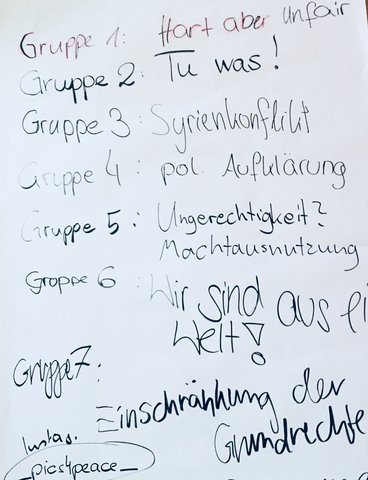 Gruppe 1: Hart aber unfair
Gruppe 2: Tu was!
Gruppe 3: Syrienkonflikt
Gruppe 4: pol. Aufklärung
Gruppe 5: Ungerechtigkeit?
Machtausnutzung
Gruppe 6: Wir sind aus ei
Welt!
Gruppe 7:
Einschränkung der
Grundrechte
Insta:
_pics4peace_